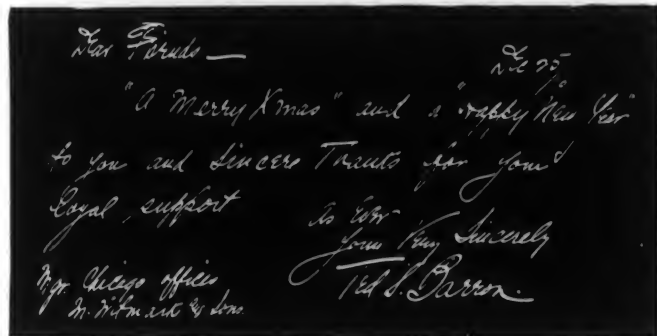 Dear Friends —
Dec 25
"A Merry Xmas" and a "Happy New Year"
to you and Sincere Thanks for your
loyal support
As Ever
Yours Very Sincerely
Ted S. Barron.
Mgr. Chicago offices
M. Witmark & Sons.